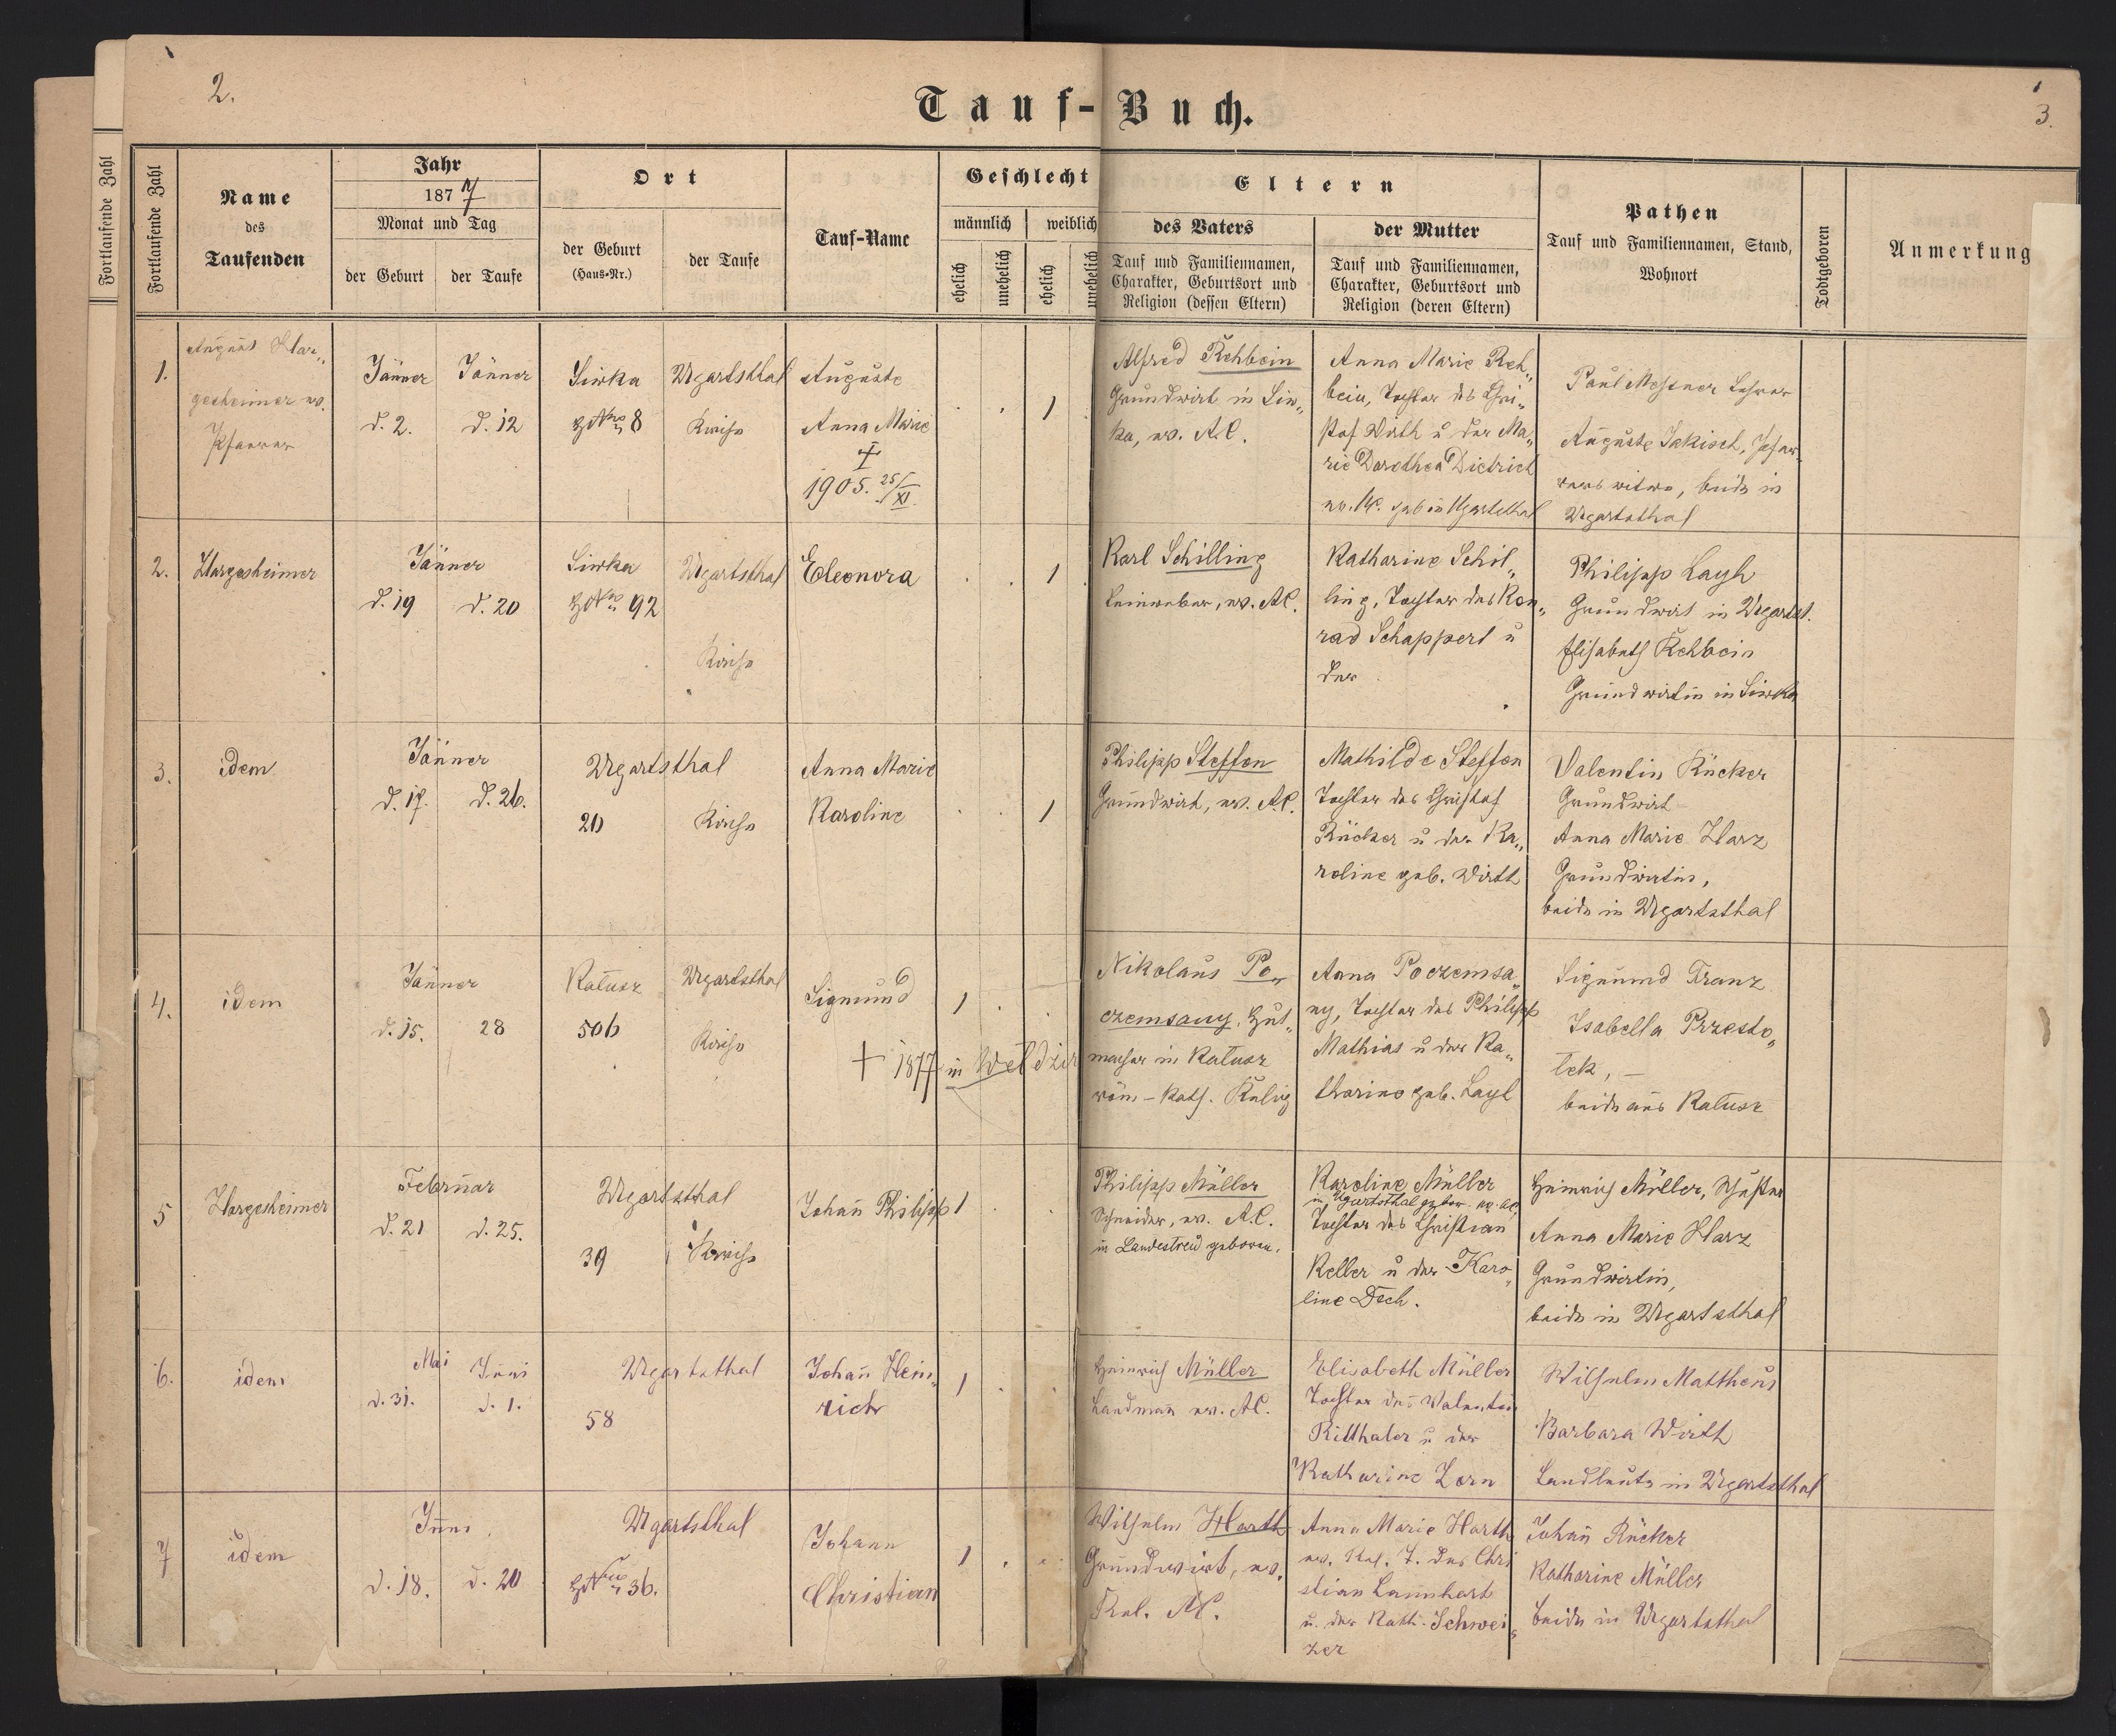 2.
3.
Tauf-Buch.
Fortlaufende Zahl
Fortlaufende Zahl
Name
des
Taufenden
Jahr
1877
Monat und Tag
der Geburt
der Taufe
Ort
der Geburt
(Haus-Nr.)
der Taufe
Tauf-Name
Geschlecht
männlich
weiblich
ehelich
unehelich
ehelich
unehelich
Eltern
des Vaters
Tauf und Familiennamen,
Charakter, Geburtsort und
Religion (dessen Eltern)
der Mutter
Tauf und Familiennamen,
Charakter, Geburtsort und
Religion (deren Eltern)
Pathen
Tauf und Familiennamen, Stand,
Wohnort
Todtgeboren
Anmerkung
1.
August Har„
gesheimer ev.
Pfarrer
Jänner
d. 2.
Jänner
d. 12
Siwka
8
Ugartsthal
Kirche
Auguste
Anna Marie
†
1905. 25/XI.
1
Alfred Rehbein
Grundwirt in Siw„
ka, ev. A.C.
Anna Marie Reh„
bein, Tochter des Chri„
stof Wirth u der Ma„
rie Dorothea Dietrich
ev. AC. geb in Ugartsthal
Paul Messner Lehrer
Auguste Jakisch, Pfar„
rers witwe, beide in
Ugartsthal
2.
Hargesheimer
Jänner
d. 19
d. 20
Siwka
92
Ugartsthal
Kirche
Eleonora
1
Karl Schilling
Leinweber, ev. AC.
Katharine Schil„
ling, Tochter des Kon„
rad Schappert u
der
Philipp Layh
Grundwirt in Ugartst.
Elisabeth Rehbein
Grundwirtin in Siwka
3.
idem
Jänner
d. 17.
d. 26.
Ugartsthal
20
Kirche
Anna Marie
Karoline
1
Philipp Steffen
Grundwirt, ev. A.C.
Mathilde Steffen
Tochter des Christof
Rücker u der Ka„
roline geb. Wirth
Valentin Rücker
Grundwirt
Anna Marie Harz
Grundwirtin,
beide in Ugartsthal
4.
idem
Jänner
d. 15.
28
Kałusz
506
Ugartsthal
Kirche
Sigmund
† 1877 in Wełdzir
1
Nikolaus Po„
czemsany, Hut„
macher in Kałusz
röm-kath. Relig
Anna Poczemsa„
ny, Tochter des Philipp
Mathias u der Ka„
tharine geb. Layh
Sigmund Franz
Isabella Przesto„
lek, –
beide aus Kałusz
5
Hargesheimer
Februar
d. 21
d. 25.
Ugartsthal
39
Kirche
Johañ Philipp
1
Philipp Müller
Schneider, ev. A.C.
in Landestreu geboren.
Karoline Müller
in Ugartsthal gebor. ev. AC
Tochter des Christian
Keller u der Karo„
line Dech.
Heinrich Müller, Schuster
Anna Marie Harz
Grundwirtin,
beide in Ugartsthal
6.
idem
Mai
d. 31.
Juni
d. 1.
Ugartsthal
58
Johañ Hein„
rich
1
Heinrich Müller
Landmañ ev. AC.
Elisabeth Müller
Tochter des Valentin
Ritthaler u der
Katharine Zorn
Wilhelm Mattheus
Barbara Wirth
Landleute in Ugartsthal
7
idem
Juni
d. 18.
d. 20
Ugartsthal
36.
Johann
Christian
1
Wilhelm Harth
Grundwirt, ev.
Rel. AC.
Anna Marie Harth
ev. Rel. T. des Chri
stian Lannhart
u. der Kath. Schwei„
zer
Johañ Rücker
Katharine Müller
beide in Ugartsthal